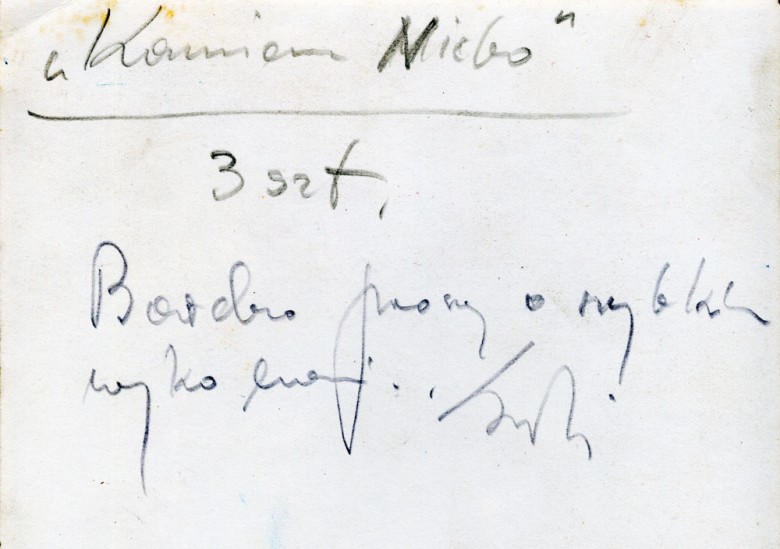 „Kamienne Niebo"
3 szt,
Bardzo proszę o szybkie
wykonanie.